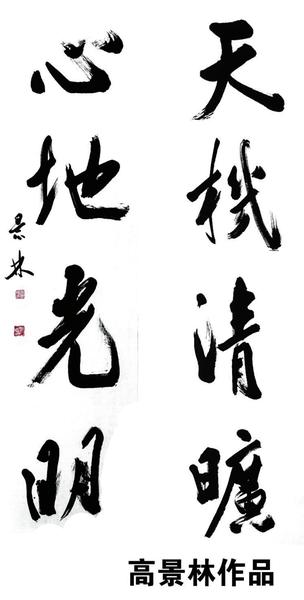 天機清曠
心地光明
景林
高景林作品